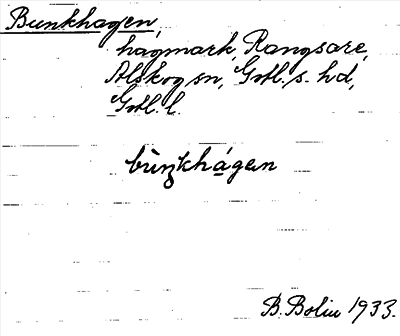 Bunkhagen,
hagmark, Rangsare,
Alskog sn, Gotl. s. hd,
Gotl. l.
bùŋkhágan
B. Bolin 1933.